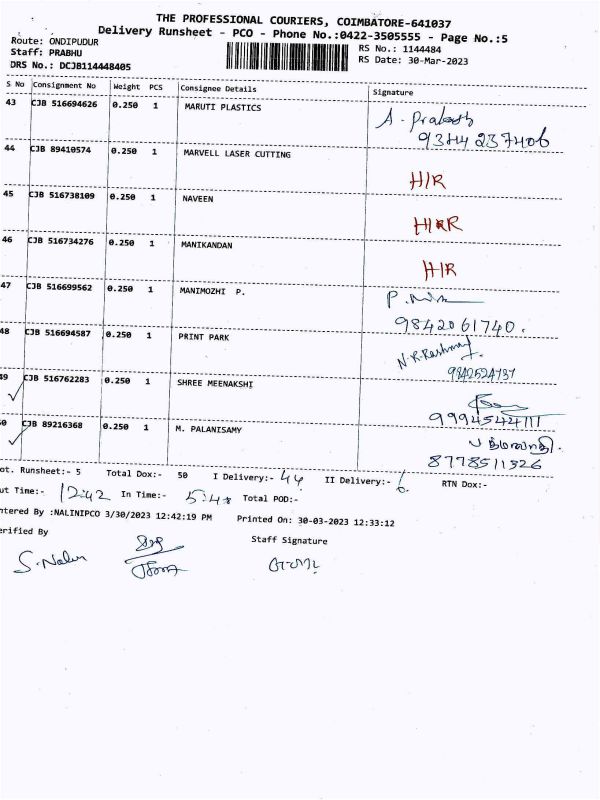 THE PROFESSIONAL COURIERS, COIMBATORE-641037
Delivery Runsheet - PCO - Phone No.:0422-3505555 - Page No.:5
Route: ONDIPUDUR
Staff: PRABHU
DRS No.: DCJB114448405
RS No.: 1144484
RS Date: 30-Mar-2023
S No Consignment No Weight PCS Consignee Details Signature
43 CJB 516694626 0.250 1 MARUTI PLASTICS A. Prakash
9344237406
44 CJB 89410574 0.250 1 MARVELL LASER CUTTING H/R
45 CJB 516738109 0.250 1 NAVEEN H/R
46 CJB 516734276 0.250 1 MANIKANDAN H/R
47 CJB 516699562 0.250 1 MANIMOZHI P.
9842061740.
48 CJB 516694587 0.250 1 PRINT PARK N.R.Reshma
9842524737
49 CJB 516762283 0.250 1 SHREE MEENAKSHI
9994544111
50 CJB 89216368 0.250 1 M. PALANISAMY
8778511326
ot. Runsheet:- 5 Total Dox:- 50 I Delivery:- 44 II Delivery:- 6 RTN Dox:-
ut Time:- 12:42 In Time:- 5:4 Total POD:-
ntered By :NALINIPCO 3/30/2023 12:42:19 PM Printed On: 30-03-2023 12:33:12
erified By Staff Signature
S. Nalin